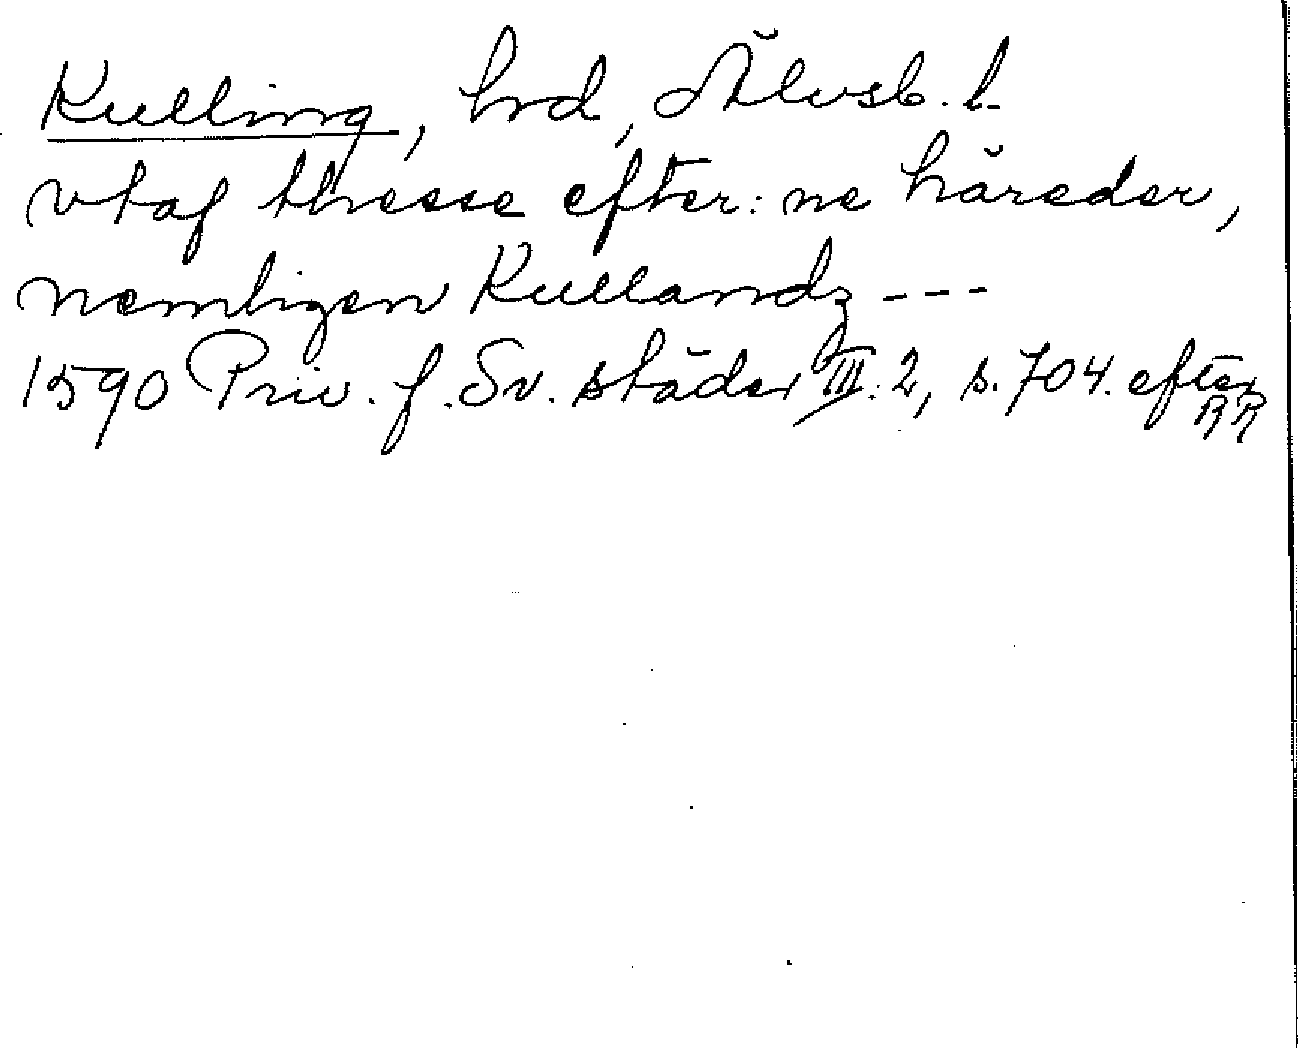 Kulling, hrd, Älvsb. l.
vtaf thesse efter: ne häreder,
nemligen Kullandz ---
1590 Priv. f. Sv. städer III: 2, s. 704. efter
RR